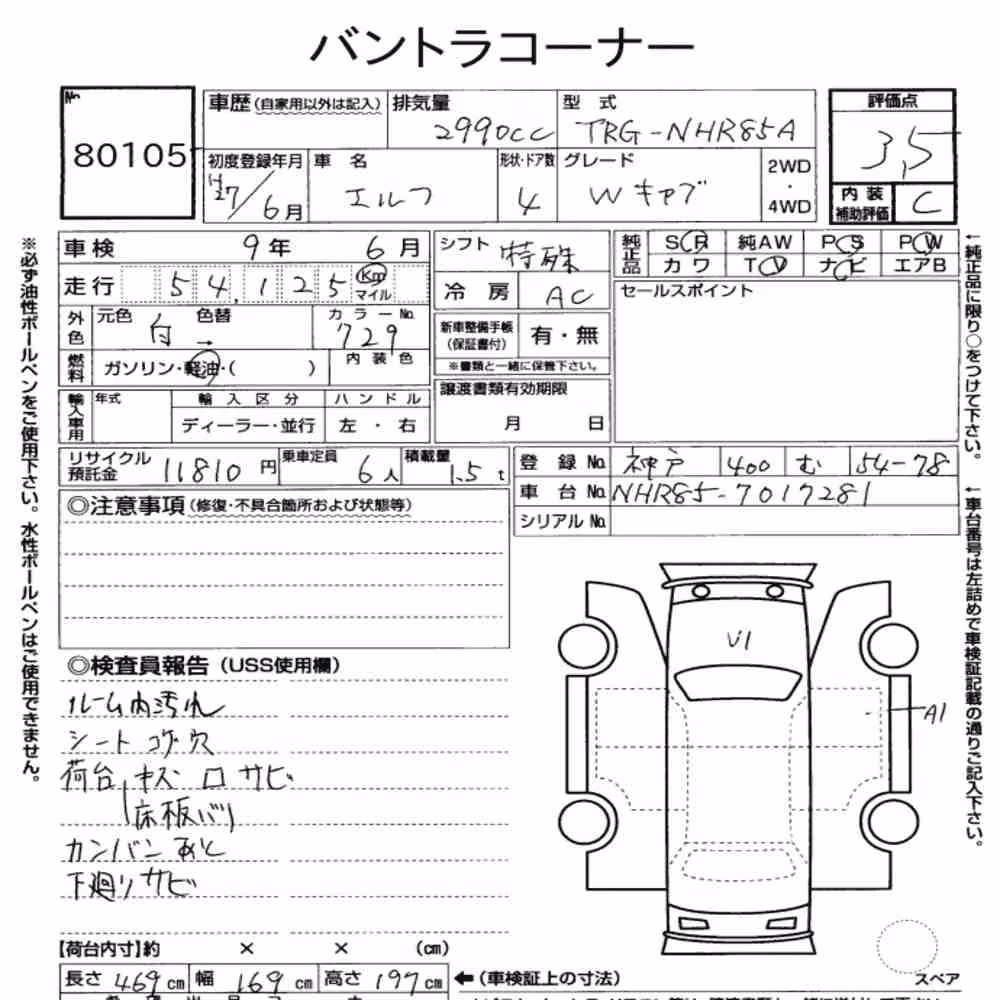 バントラコーナー
No. 80105
車歴(自家用以外は記入) 排気量 2990cc 型式 TRG-NHR85A
評価点 3,5
初度登録年月 H27/6月 車名 エルフ 形状・ドア数 4 グレード Wキャブ 2WD・4WD
内装補助評価 C
車検 9年 6月 シフト 特殊 純正品 SR 純AW PS PW
カワ TV ナビ エアB
走行 54,125 Km マイル 冷房 AC セールスポイント
外色 元色 白 色替 → カラーNo. 729 新車整備手帳(保証書付) 有・無
燃料 ガソリン・軽油・( ) 内装色 ※書類と一緒に保管下さい。
輸入車用 年式 輸入区分 ハンドル 譲渡書類有効期限
ディーラー・並行 左・右 月 日
リサイクル預託金 11810円 乗車定員 6人 積載量 1.5t
登録No. 神戸 400 む 54-78
車台No. NHR85-7017281
シリアルNo.
◎注意事項(修復・不具合箇所および状態等)
◎検査員報告(USS使用欄)
ルーム内汚れ
シート コゲ穴
荷台 キズ ロ サビ
床板バリ
カンバンあと
下廻りサビ
U1
A1
【荷台内寸】約 × × (cm)
長さ 469cm 幅 169cm 高さ 197cm ←(車検証上の寸法)
スペア
※必ず油性ボールペンをご使用下さい。水性ボールペンはご使用できません。
←純正品に限り○をつけて下さい。
←車台番号は左詰めで車検証記載の通りご記入下さい。